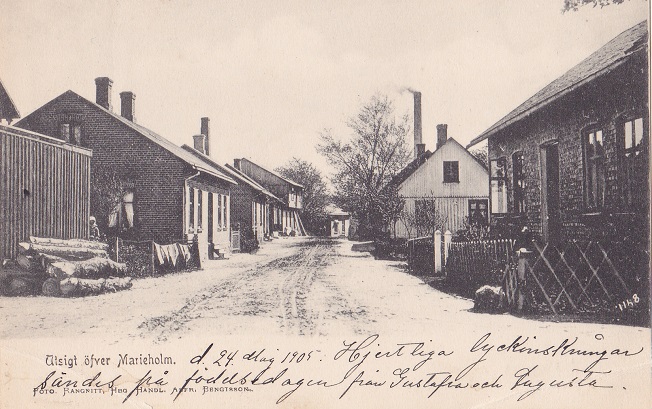 1148
Utsigt öfver Marieholm. d. 24 Maj 1905. Hjertliga lyckönskningar
sändes på födelsedagen från Gustafva och Augusta.
Foto. Rangnitt, Hbg Handl. Alfr. Bengtsson.